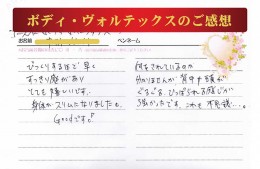 ボディ・ヴォルテックスのご感想
お名前
ペンネーム
びっくりするほど早く
すっきり感があり
とても嬉しいです。
身体がスリムになりました。
Goodです♪
何をされているのか
分かりませんが 背中や頭が
ぐるぐる、ひっぱられる感じが
強かったです。これも不思議…。